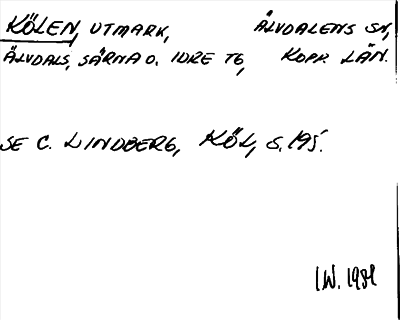 KÖLEN, UTMARK, ÄLVDALENS SN,
ÄLVDALS, SÄRNA O. IDRE TG, KOPP. LÄN.
SE C. LINDBERG, KÖL, S. 195.
I.W. 1981